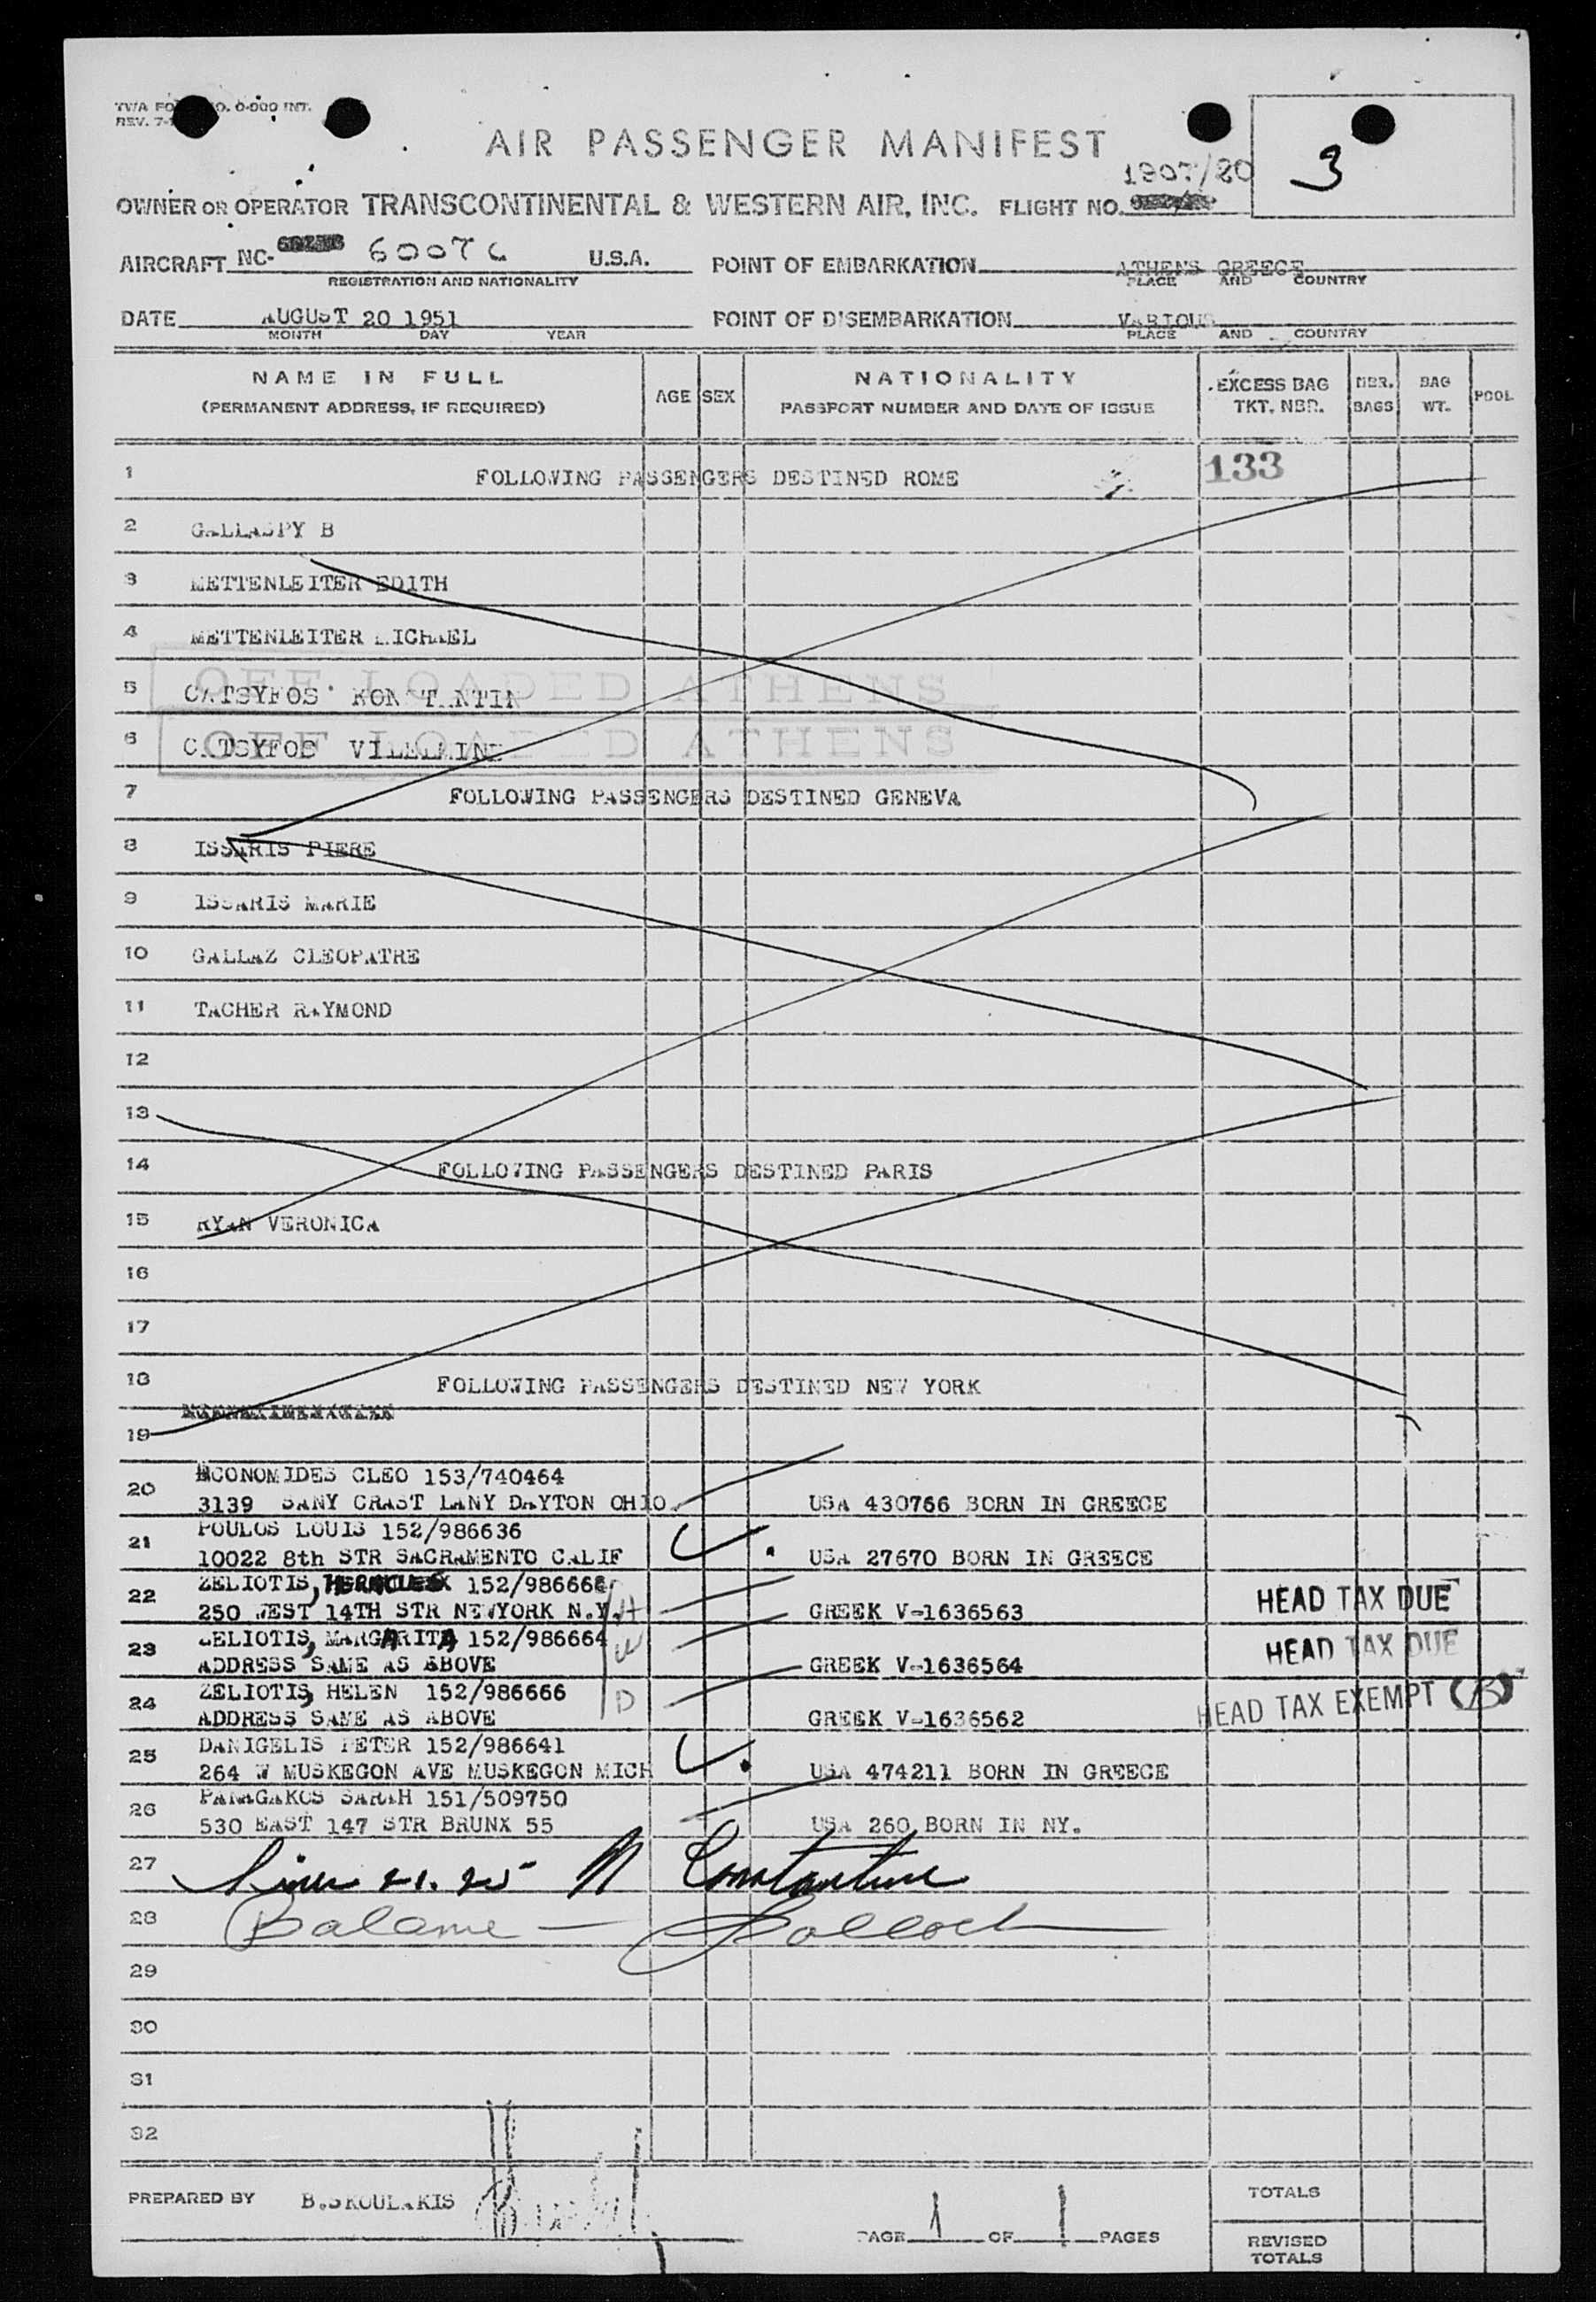 TWA FO O. O-000 INT.
REV. 7-
AIR PASSENGER MANIFEST
3
1907/20
OWNER OR OPERATOR TRANSCONTINENTAL & WESTERN AIR, INC. FLIGHT NO.
AIRCRAFT NC- 6007C U.S.A. POINT OF EMBARKATION ATHENS GREECE
REGISTRATION AND NATIONALITY PLACE AND COUNTRY
DATE AUGUST 20 1951 POINT OF DISEMBARKATION VARIOUS
MONTH DAY YEAR PLACE AND COUNTRY
NAME IN FULL AGE SEX NATIONALITY EXCESS BAG NBR. BAG POOL
(PERMANENT ADDRESS, IF REQUIRED) PASSPORT NUMBER AND DATE OF ISSUE TKT. NBR. BAGS WT.
1 FOLLOWING PASSENGERS DESTINED ROME 133
2 GALLASPY B
3 METTENLEITER EDITH
4 METTENLEITER MICHAEL
OFF LOADED ATHENS
5 CATSYFOS KONSTANTIN
OFF LOADED ATHENS
6 CATSYFOS
7 FOLLOWING PASSENGERS DESTINED GENEVA
8 ISSARIS PIERE
9 ISSARIS MARIE
10 GALLAZ CLEOPATRE
11 TACHER RAYMOND
12
13
14 FOLLOWING PASSENGERS DESTINED PARIS
15 RYAN VERONICA
16
17
18 FOLLOWING PASSENGERS DESTINED NEW YORK
19
20 ECONOMIDES CLEO 153/740464
3139 SANY CRAST LANY DAYTON OHIO USA 430766 BORN IN GREECE
21 POULOS LOUIS 152/986636
10022 8th STR SACRAMENTO CALIF USA 27670 BORN IN GREECE
22 ZELIOTIS, HERACLES 152/986668 HEAD TAX DUE
250 WEST 14TH STR NEWYORK N.Y. H GREEK V-1636563
23 ZELIOTIS, MARGARITA 152/986664 W HEAD TAX DUE
ADDRESS SAME AS ABOVE GREEK V-1636564
24 ZELIOTIS, HELEN 152/986666 D HEAD TAX EXEMPT (B)
ADDRESS SAME AS ABOVE GREEK V-1636562
25 DANIGELIS PETER 152/986641
264 W MUSKEGON AVE MUSKEGON MICH USA 474211 BORN IN GREECE
26 PANAGAKOS SARAH 151/509750
530 EAST 147 STR BRUNX 55 USA 260 BORN IN NY.
27 Lines 21. 25 N Constantine
28 Balance - Pollock
29
30
31
32
PREPARED BY B.SKOULAKIS PAGE 1 OF 1 PAGES
TOTALS
REVISED
TOTALS